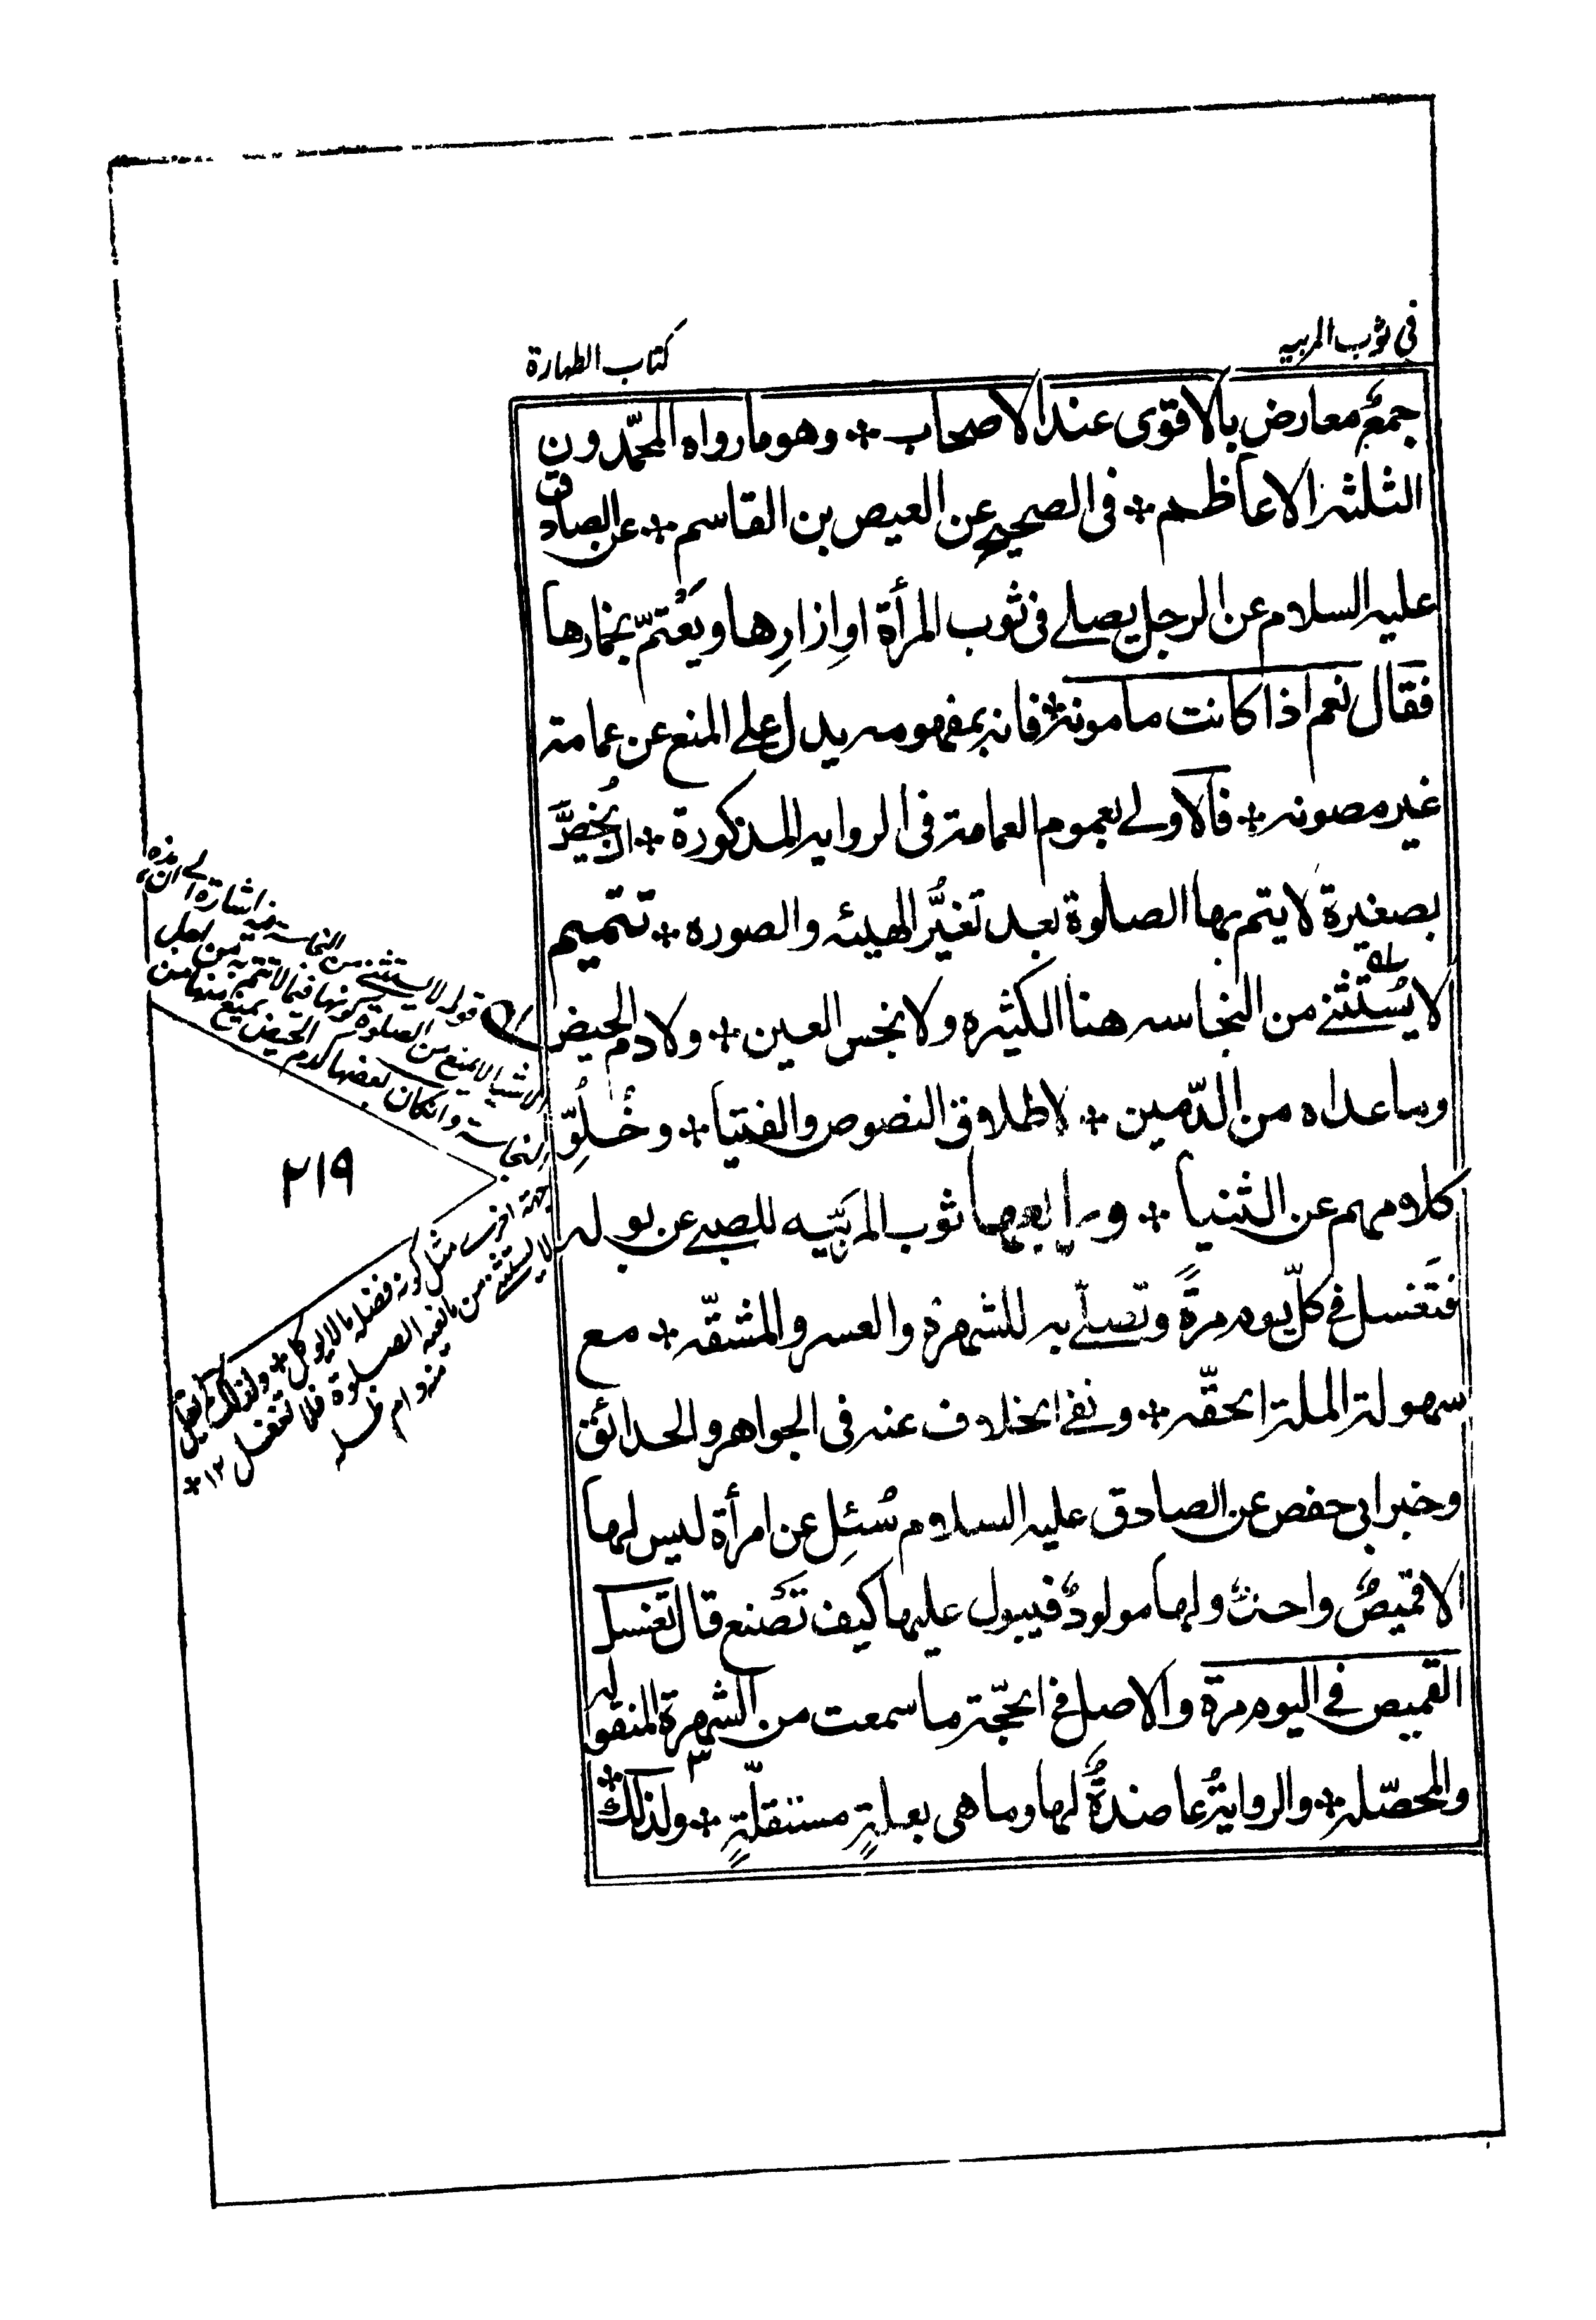 في ثوب المربيه
كتاب الطهارة
جمعٌ معارض بالاقوى عند الاصحاب * وهو ما رواه المحمّدون
الثلثة الاعاظم * فى الصحيح عن العيص بن القاسم * عن الصادق
عليه السلام عن الرجل يصلے فى ثوب المرأة اوِ ازارِها ويَعْتمّ بخمارها
فقال نعم اذا كانت مامونة * فانه بمفهومه يدل علے المنع عن عمامة
غير مصونه * فالاولے بعموم العمامة فى الروايه المذكورة * ان يُخصَّ
بصغيرة لا يتم بها الصلوة بعد تغيُّر الهيئه والصوره * تتميم
لا يُستثنے من النجاسه هنا الكثيره ولا نجس العين * ولا دم الحيض
وما عداه من الدّمين * لاطلاق النصوص والفتيا * وخُلُوّ
كلامهم عن الثنيا * ورابعها ثوب المربّيه للصبے عن بوله
فتَغسل فے كلّ يوم مرةً وتصلّے به للشهرة والعسر والمشقّه * مع
سهولة الملة الحقّه * ونفے الخلاف عنه فى الجواهر والحدائق
وخبر ابى حفص عن الصادق عليه السلام سُئِل عن امرأة ليس لها
الا قميصٌ واحدٌ ولها مولودٌ فيبول عليها كيف تَصنع قال تغسل
القميص فے اليوم مرة والاصل فے الحجّة ما سمعت من الشهرة المنقوله
والمحصّله * والروايةُ عاضدةٌ لها وما هى بعلةٍ مستقلّةٍ * ولذلك *
قوله لا يستثنے من النجاسه هنا اشارة الے ان هذه
الاشيا لا يمنع من الصلوة كونها فيما لا تتم به من اجل
النجاسة وان كان بعضها كدم الحيض يمنع منها من
جهة اخرے مثل كونه فضله ما لا يوكل * ولذلك لم يقل
لا يستثنے من مانعيه الصلوة فلا تغفل ١٢ *
منه دام ظله
٢١٩